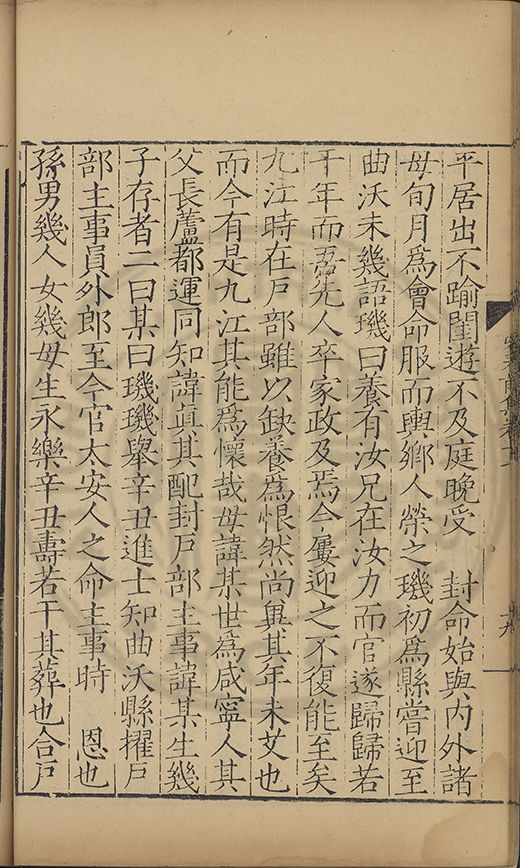 平居出不踰閨遊不及庭晚受　封命始與內外諸
母旬月爲會命服而輿鄉人榮之璣初爲縣嘗迎至
曲沃未幾語璣曰養有汝兄在汝力而官遂歸歸若
干年而吾先人卒家政及焉今屢迎之不復能至矣
九江時在戶部雖以缺養爲恨然尚兾其年未艾也
而今有是九江其能爲懷哉母諱某世爲咸寧人其
父長蘆都運同知諱眞其配封戶部主事諱某生幾
子存者二曰某曰璣璣舉辛丑進士知曲沃縣擢戶
部主事員外郎至今官太安人之命主事時　恩也
孫男幾人女幾母生永樂辛丑壽若干其葬也合戶